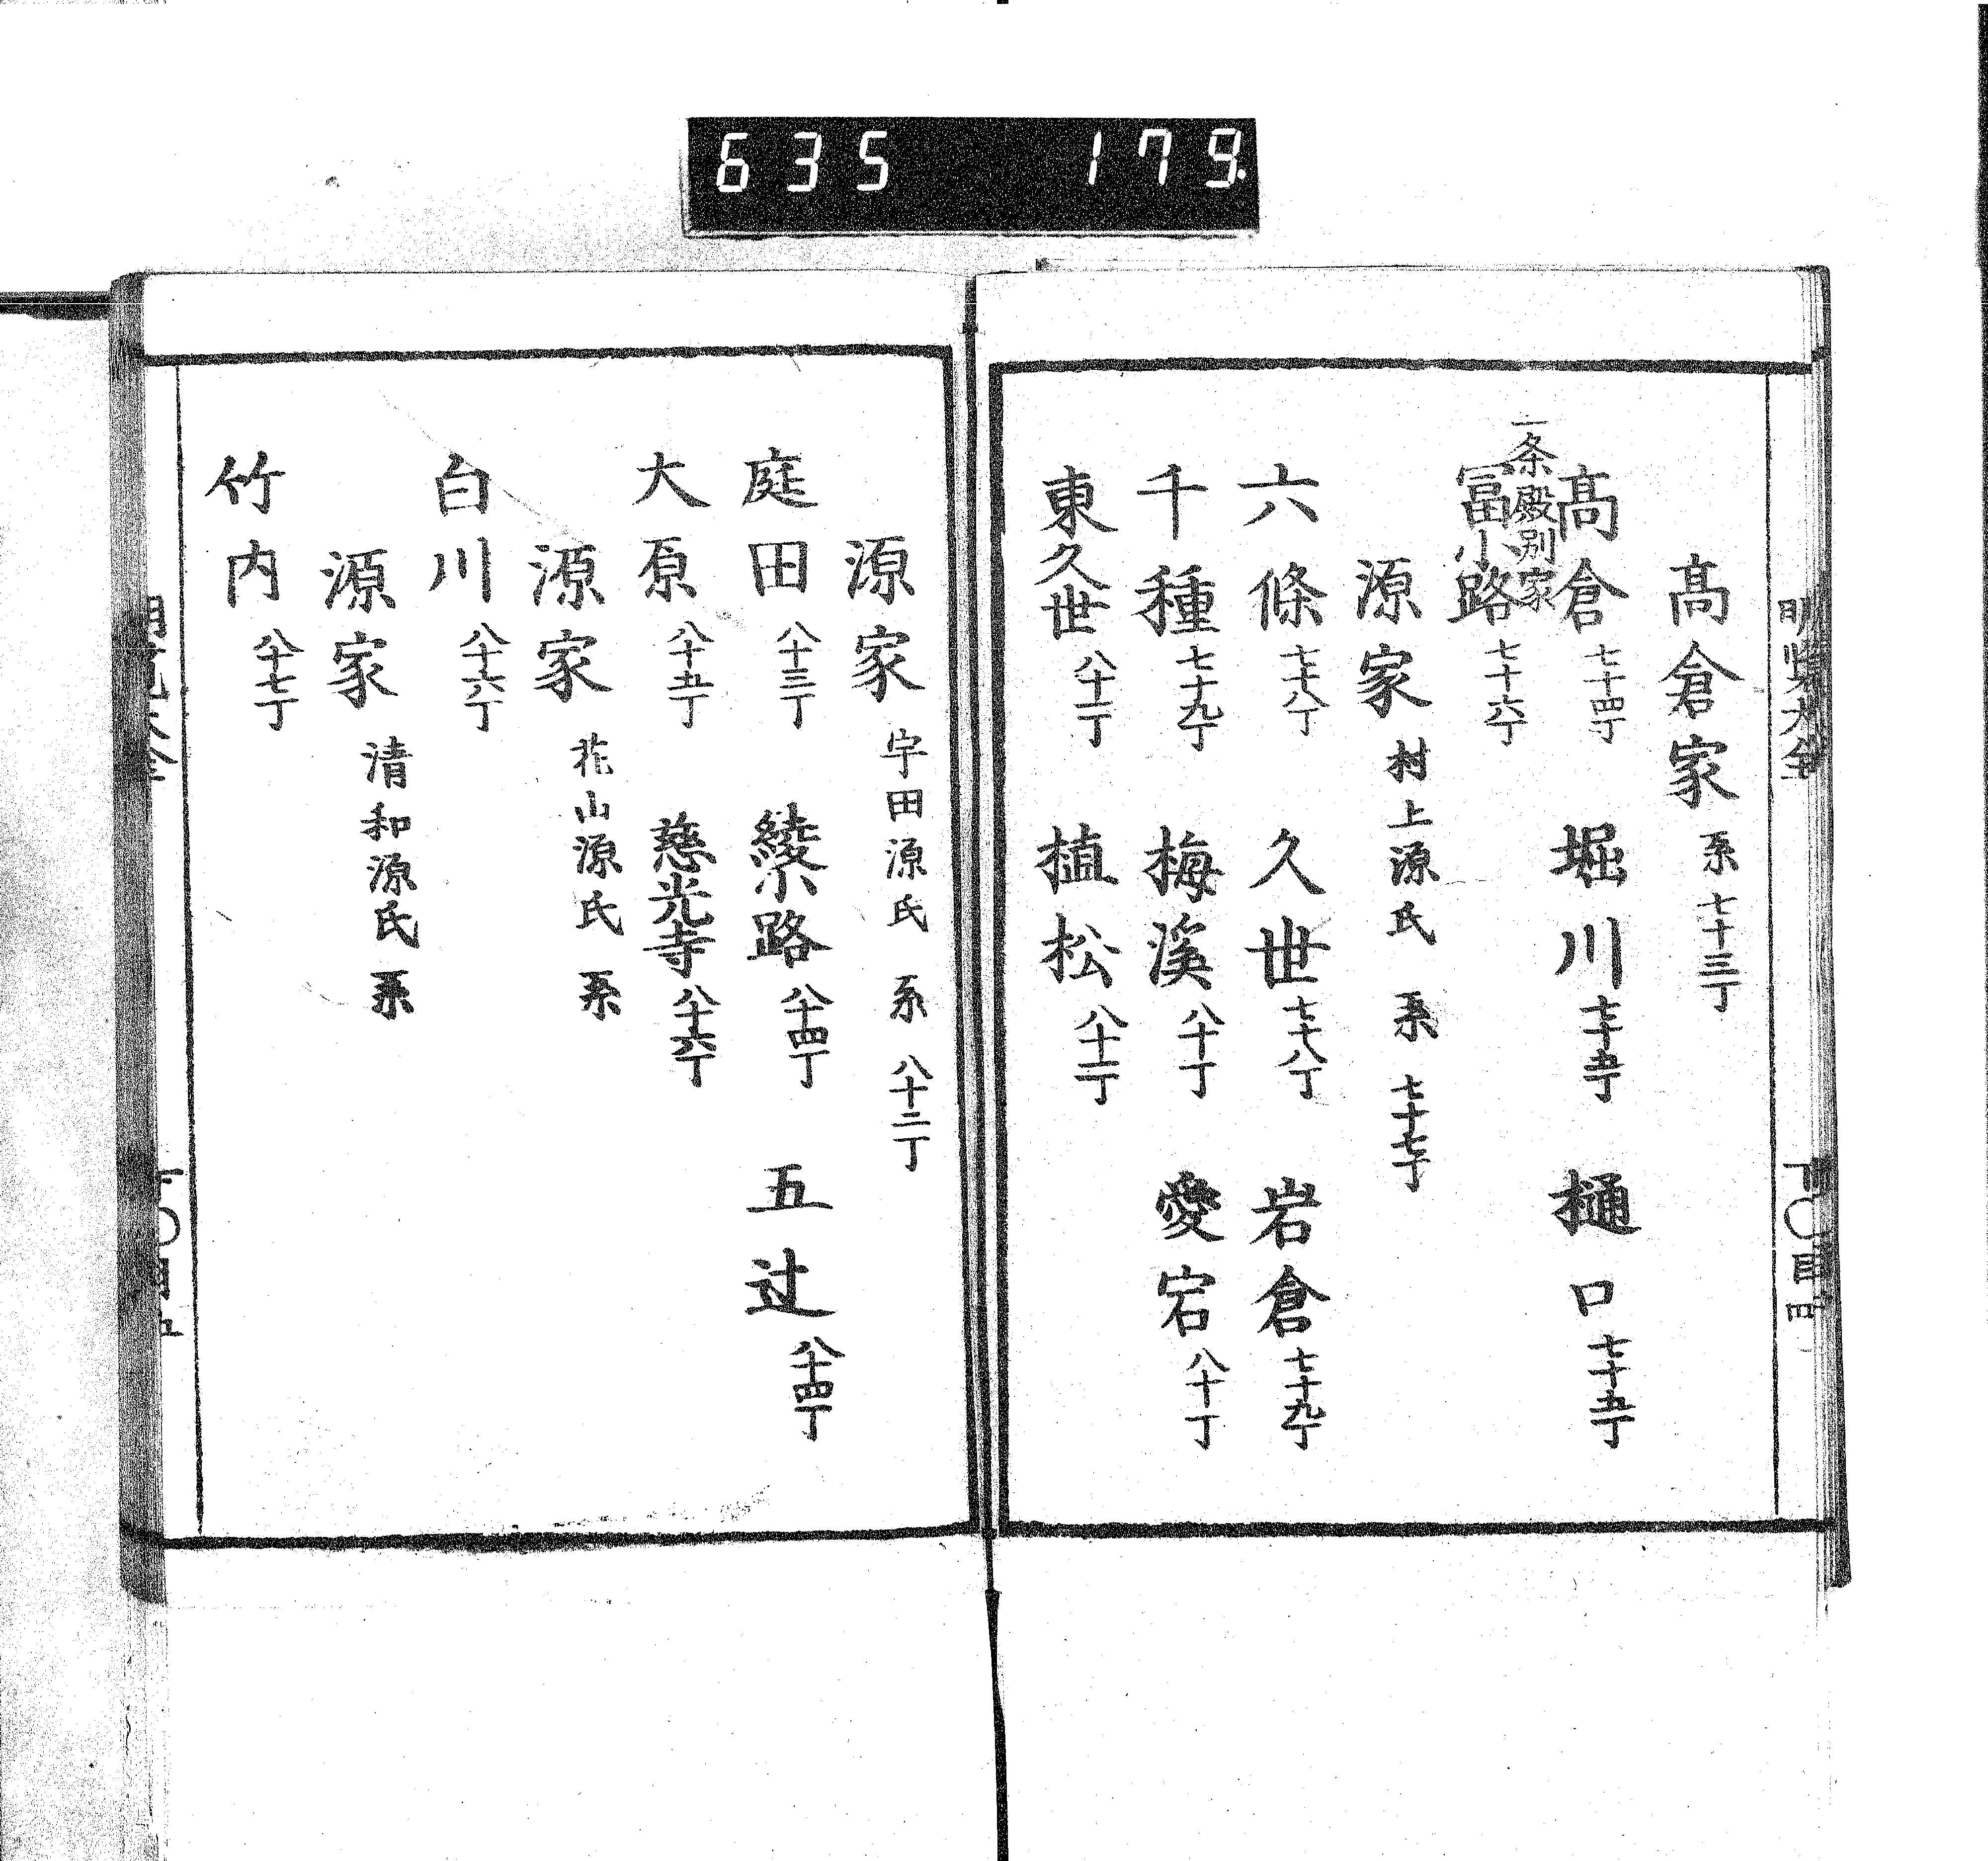 635 179.
明覧大全
下〇目四
髙倉家 系 七十三丁
髙倉 七十四丁 堀川 七十五丁 樋口 七十五丁
一条殿別家
冨小路 七十六丁
源家 村上源氏 系 七十七丁
六條 七十八丁 久世 七十八丁 岩倉 七十九丁
千種 七十九丁 梅溪 八十丁 愛宕 八十丁
東久世 八十一丁 植松 八十二丁
源家 宇田源氏 系 八十二丁
庭田 八十三丁 綾小路 八十四丁 五辻 八十四丁
大原 八十五丁 慈光寺 八十六丁
源家 花山源氏 系
白川 八十六丁
源家 清和源氏 系
竹内 八十七丁